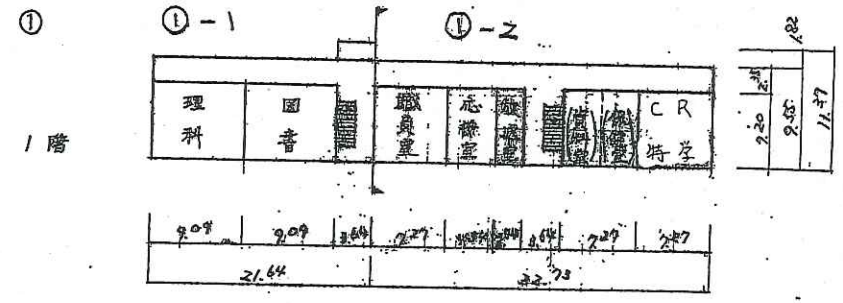 ①
①-1
①-2
1階
理科
図音
職員室
応接室
放送室
(資料室)
(保健室)
CR
特学
9.09
9.09
3.64
7.27
3.64
7.27
7.27
21.64
32.73
1.82
7.20
9.55
11.37